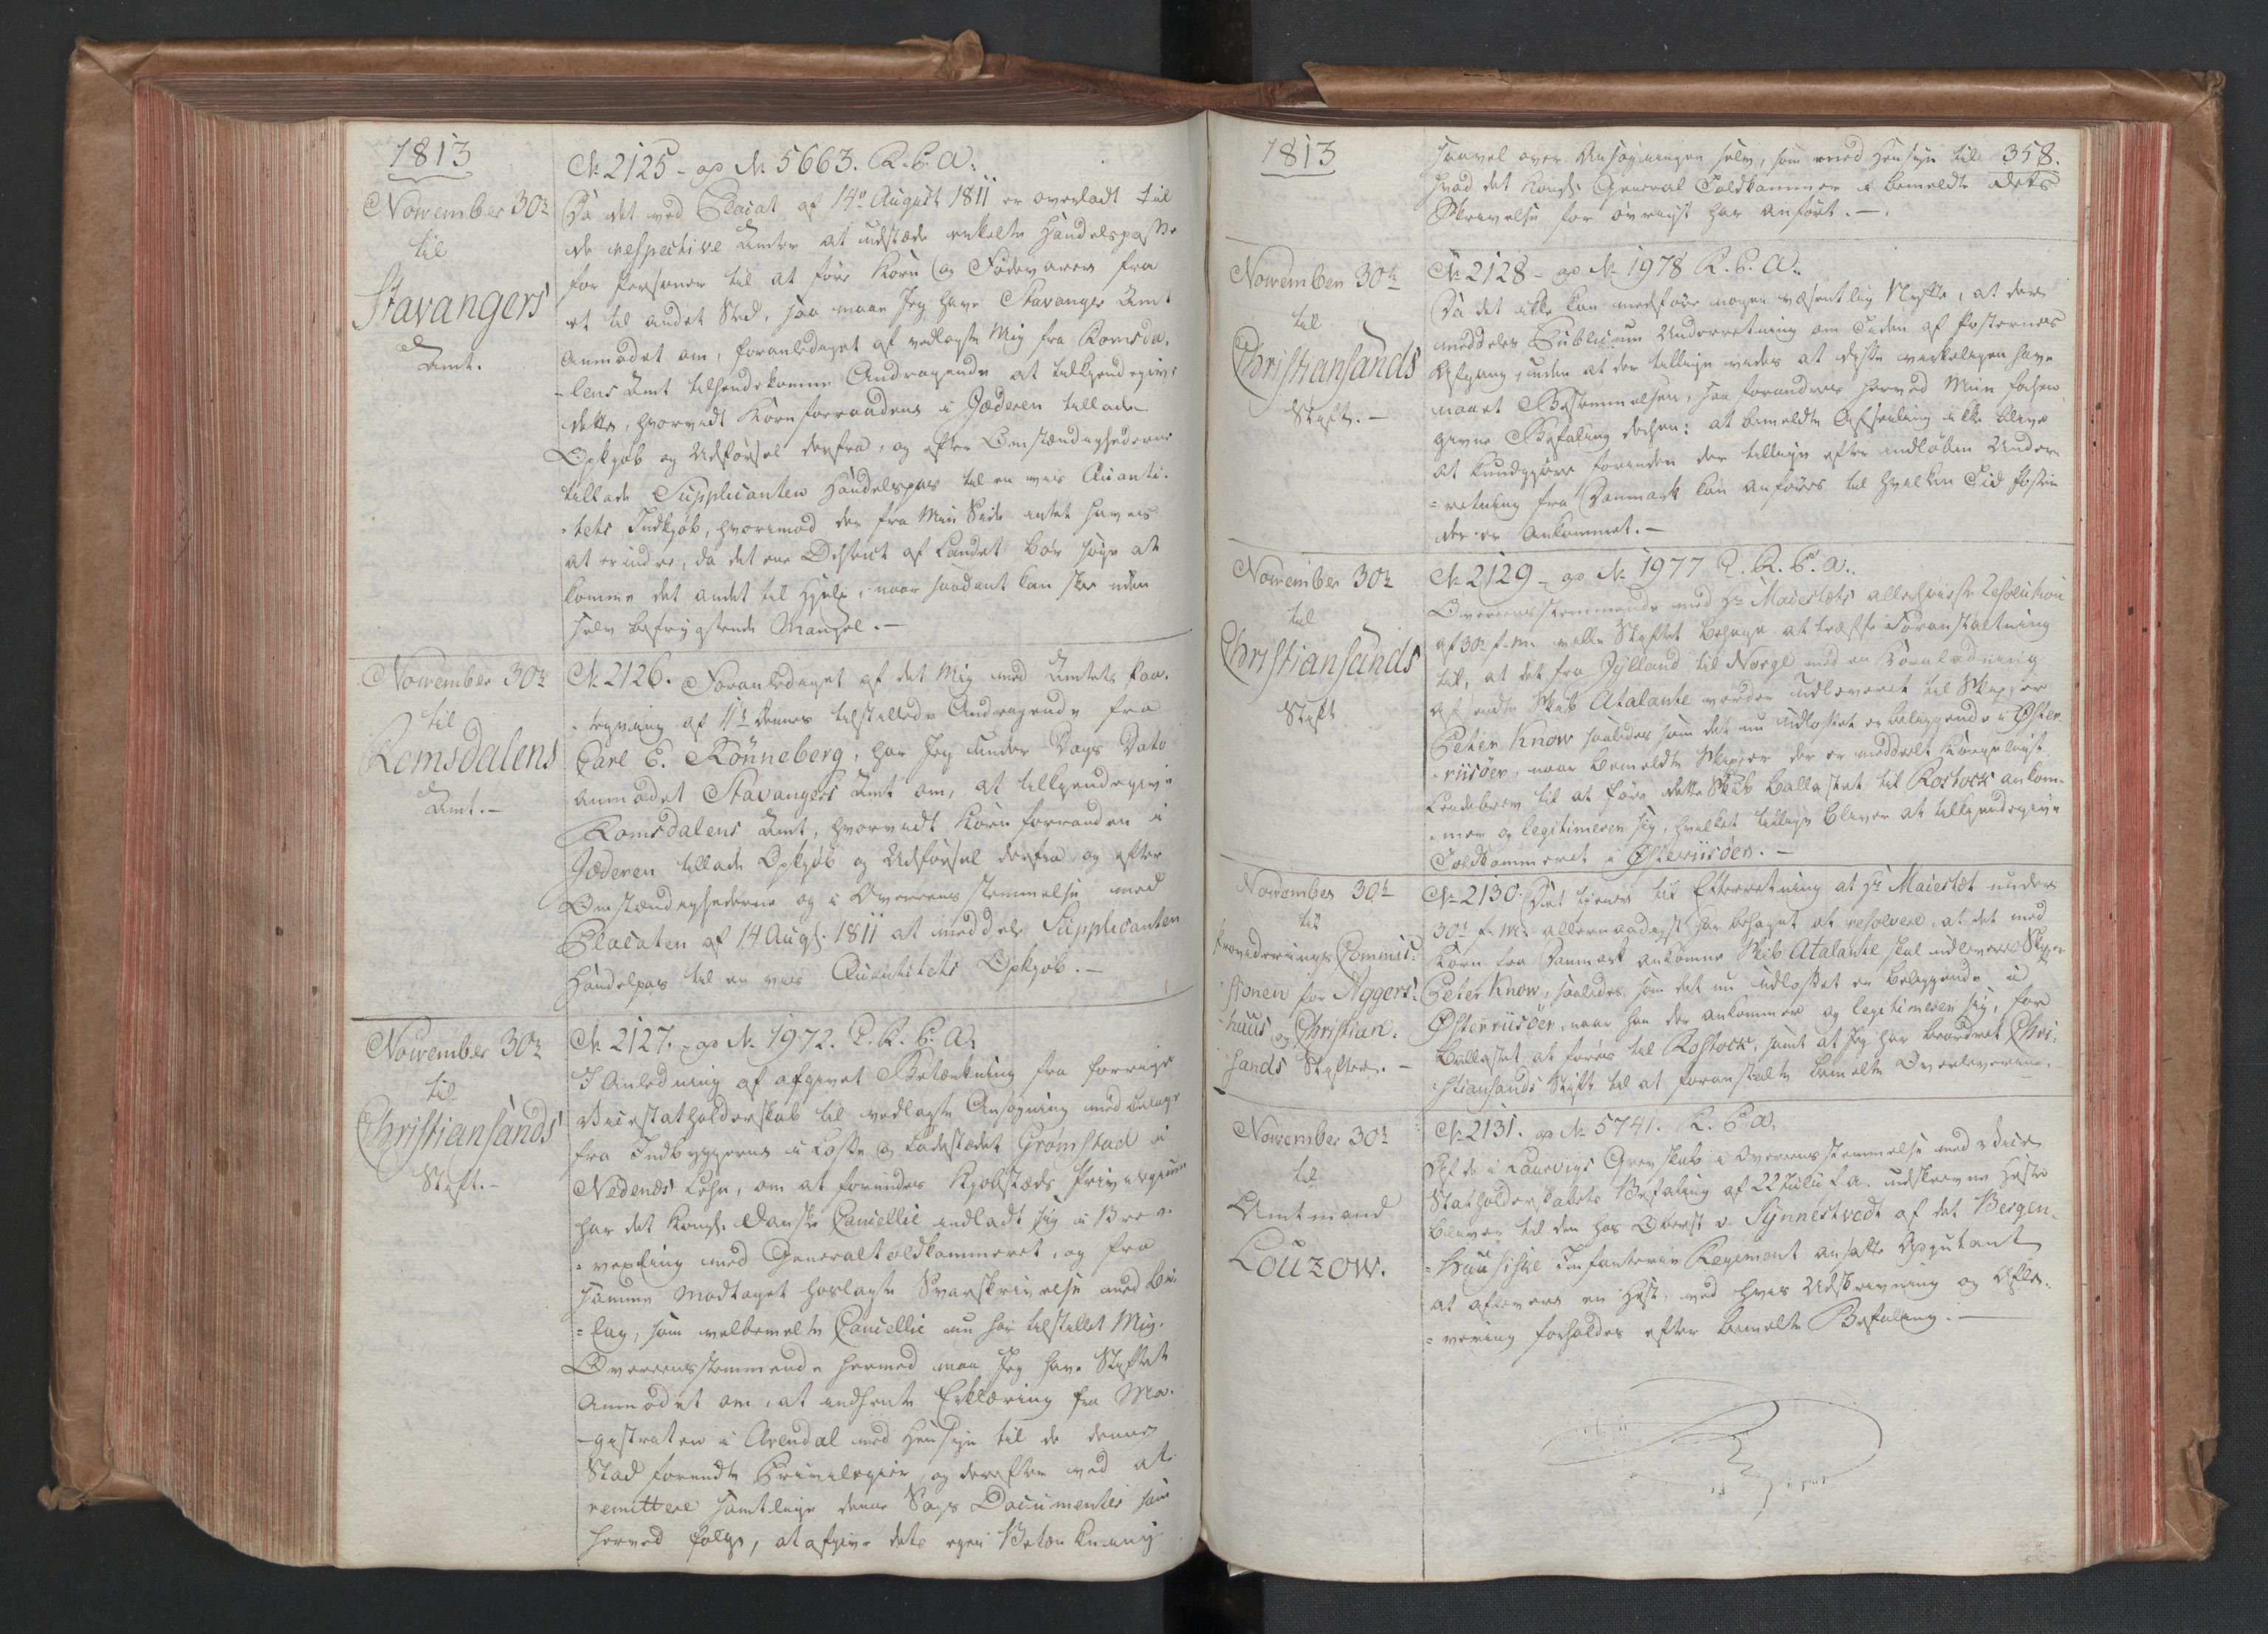 1813
November 30te
til
Stavangers
Amt.
No 2125 - ad No 5663. R. C. A.
Da det ved Placat af 14de August 1811 er overladt til
de respective Amter at udstæde enkelte Handelspasse
for Personer til at føre Korn og Fødevarer fra
et til andet Sted, saa maae Jeg have Stavanger Amt
anmodet om, foranlediget af vedlagte Mig fra Romsda-
-lens Amt tilhændekomne Andragende at tilkjendegive
dette, hvorvidt Kornforraadene i Jæderen tillade
Opkjøb og Udførsel derfra, og efter Omstændighederne
tillade Supplicanten Handelspas til en vis Quanti-
-tets Indkjøb, hvorimod der fra Min Side intet haves
at erindre, da det ene District af Landet bør søge at
komme det andet til Hjelp, naar saadant kan skee uden
selv befrygtende Mangel. -
November 30te
til
Romsdalens
Amt. -
No 2126. Foranlediget af det Mig med Amtets Paa-
-tegning af 11te dennes tilstillede Andragende fra
Carl E. Rönneberg, har Jeg under Dags Dato
anmodet Stavangers Amt om, at tilkjendegive
Romsdalens Amt, hvorvidt Kornforraaden i
Jæderen tillade Opkjøb og Udførsel derfra, og efter
Omstændighederne og i Overeensstemmelse med
Placaten af 14 Augs. 1811 at meddele Supplicanten
Handelspas til en vis Quantitets Opkjøb. -
November 30te
til
Christiansands
Stift. -
No 2127. - ad No 1972. P. R. C. A.
I Anledning af afgivet Betænkning fra forrige
Vicestatholderskab til vedlagte Ansøgning med Bilage
fra Indbyggerne i Losse og Ladestædet Grømstad i
Nedenæs Lehn, om at forundes Kjøbstæds Privilegium
har det Kongl. Danske Cancellie indladt sig i Brev-
-vexling med Generaltoldkammeret, og fra
samme modtaget hoslagte Svarskrivelse med Bi-
-lag, som velbemelte Cancellie nu har tilstillet Mig.
Overeensstemmende hermed maa Jeg have Stiftet
Anmodet om, at indhente Erklæring fra Ma-
-gistraten i Arendal med Hensyn til de denne
Stad forundte Privilegier, og derefter ved at
remittere samtlige denne Sags Documenter som
herved følge, at afgive dets egen Betænkning
1813
358.
saavel over Ansøgningen selv, som med Hensyn til
hvad det Kongl. General Toldkammer i bemeldte dets
Skrivelse for øvrigt har anført. -.
November 30te
til
Christiansands
Stift. -
No 2128 - ad No 1978 R. C. A.
Da det ikke kan medføre nogen væsentlig Nytte, at der
meddeles Publicum Underretning om Tiden af Posternes
Afgang, uden at der tillige vides at disse virkeligen have
naaet Bestemmelsen, saa forandres herved Min forhen
givne Befaling derhen: at bemeldte Afseiling ikke bliver
at kundgjøre forinden der tillige efter indløben Under-
-retning fra Danmark kan anføres til hvilken Tid Posten
der er Ankommet. -
November 30te
til
Christiansands
Stift
No 2129 - ad No 1977 P. R. C. A.
Overeensstemmende med Hs Maiestæts allerhøieste Resolution
af 30te f. M. ville Stiftet behage at træffe Foranstaltning
til, at det fra Jylland til Norge med en Kornladning
afsendte Skib Atalante vorder udleveret til Skipper
Peter Know saaledes som det nu udlosset er beliggende i Øster-
-riisöer, naar bemeldte Skipper der er meddeelt Kongeligt
Leidebrev til at føre dette Skib Ballastet til Rostock ankom-
-mer og legitimerer sig, hvilket tillige bliver at tilkjendegive
Toldkammeret i Østeriisöer. -
November 30te
til
Provideerings Commis-
sionen for Aggers-
huus og Christian-
sands Stifter. -
No 2130. Det tjener til Efterretning at Hs Maiestæt under
30te f. M. allernaadigst har behaget at resolvere, at det med
Korn fra Danmark ankomne Skib Atalante skal udleveres Skipper
Peter Know, saaledes som det nu udlosset er beliggende i
Østerriisöer, naar han der ankommer og legitimerer sig, for
Ballastet at føres til Rostock, samt at Jeg har beordret Chri-
-stiansands Stift til at foranstalte bemelte Overlevering. -
November 30te
til
Amtmand
Louzow.
No 2131. ad No 5741. R. C. A.
Af de i Laurvigs Grevskab i Overeensstemmelse med Vice
Statholderskabets Befaling af 22 Julii d. A. udskrevne Heste
bliver til den hos Oberst v. Synnestvedt af det Bergen-
-huusiske Infanterie Regiment ansatte Adjutant
at aflevere en Hest, ved hvis Udskrivning og Afle-
-vering forholdes efter bemelte Befaling. -